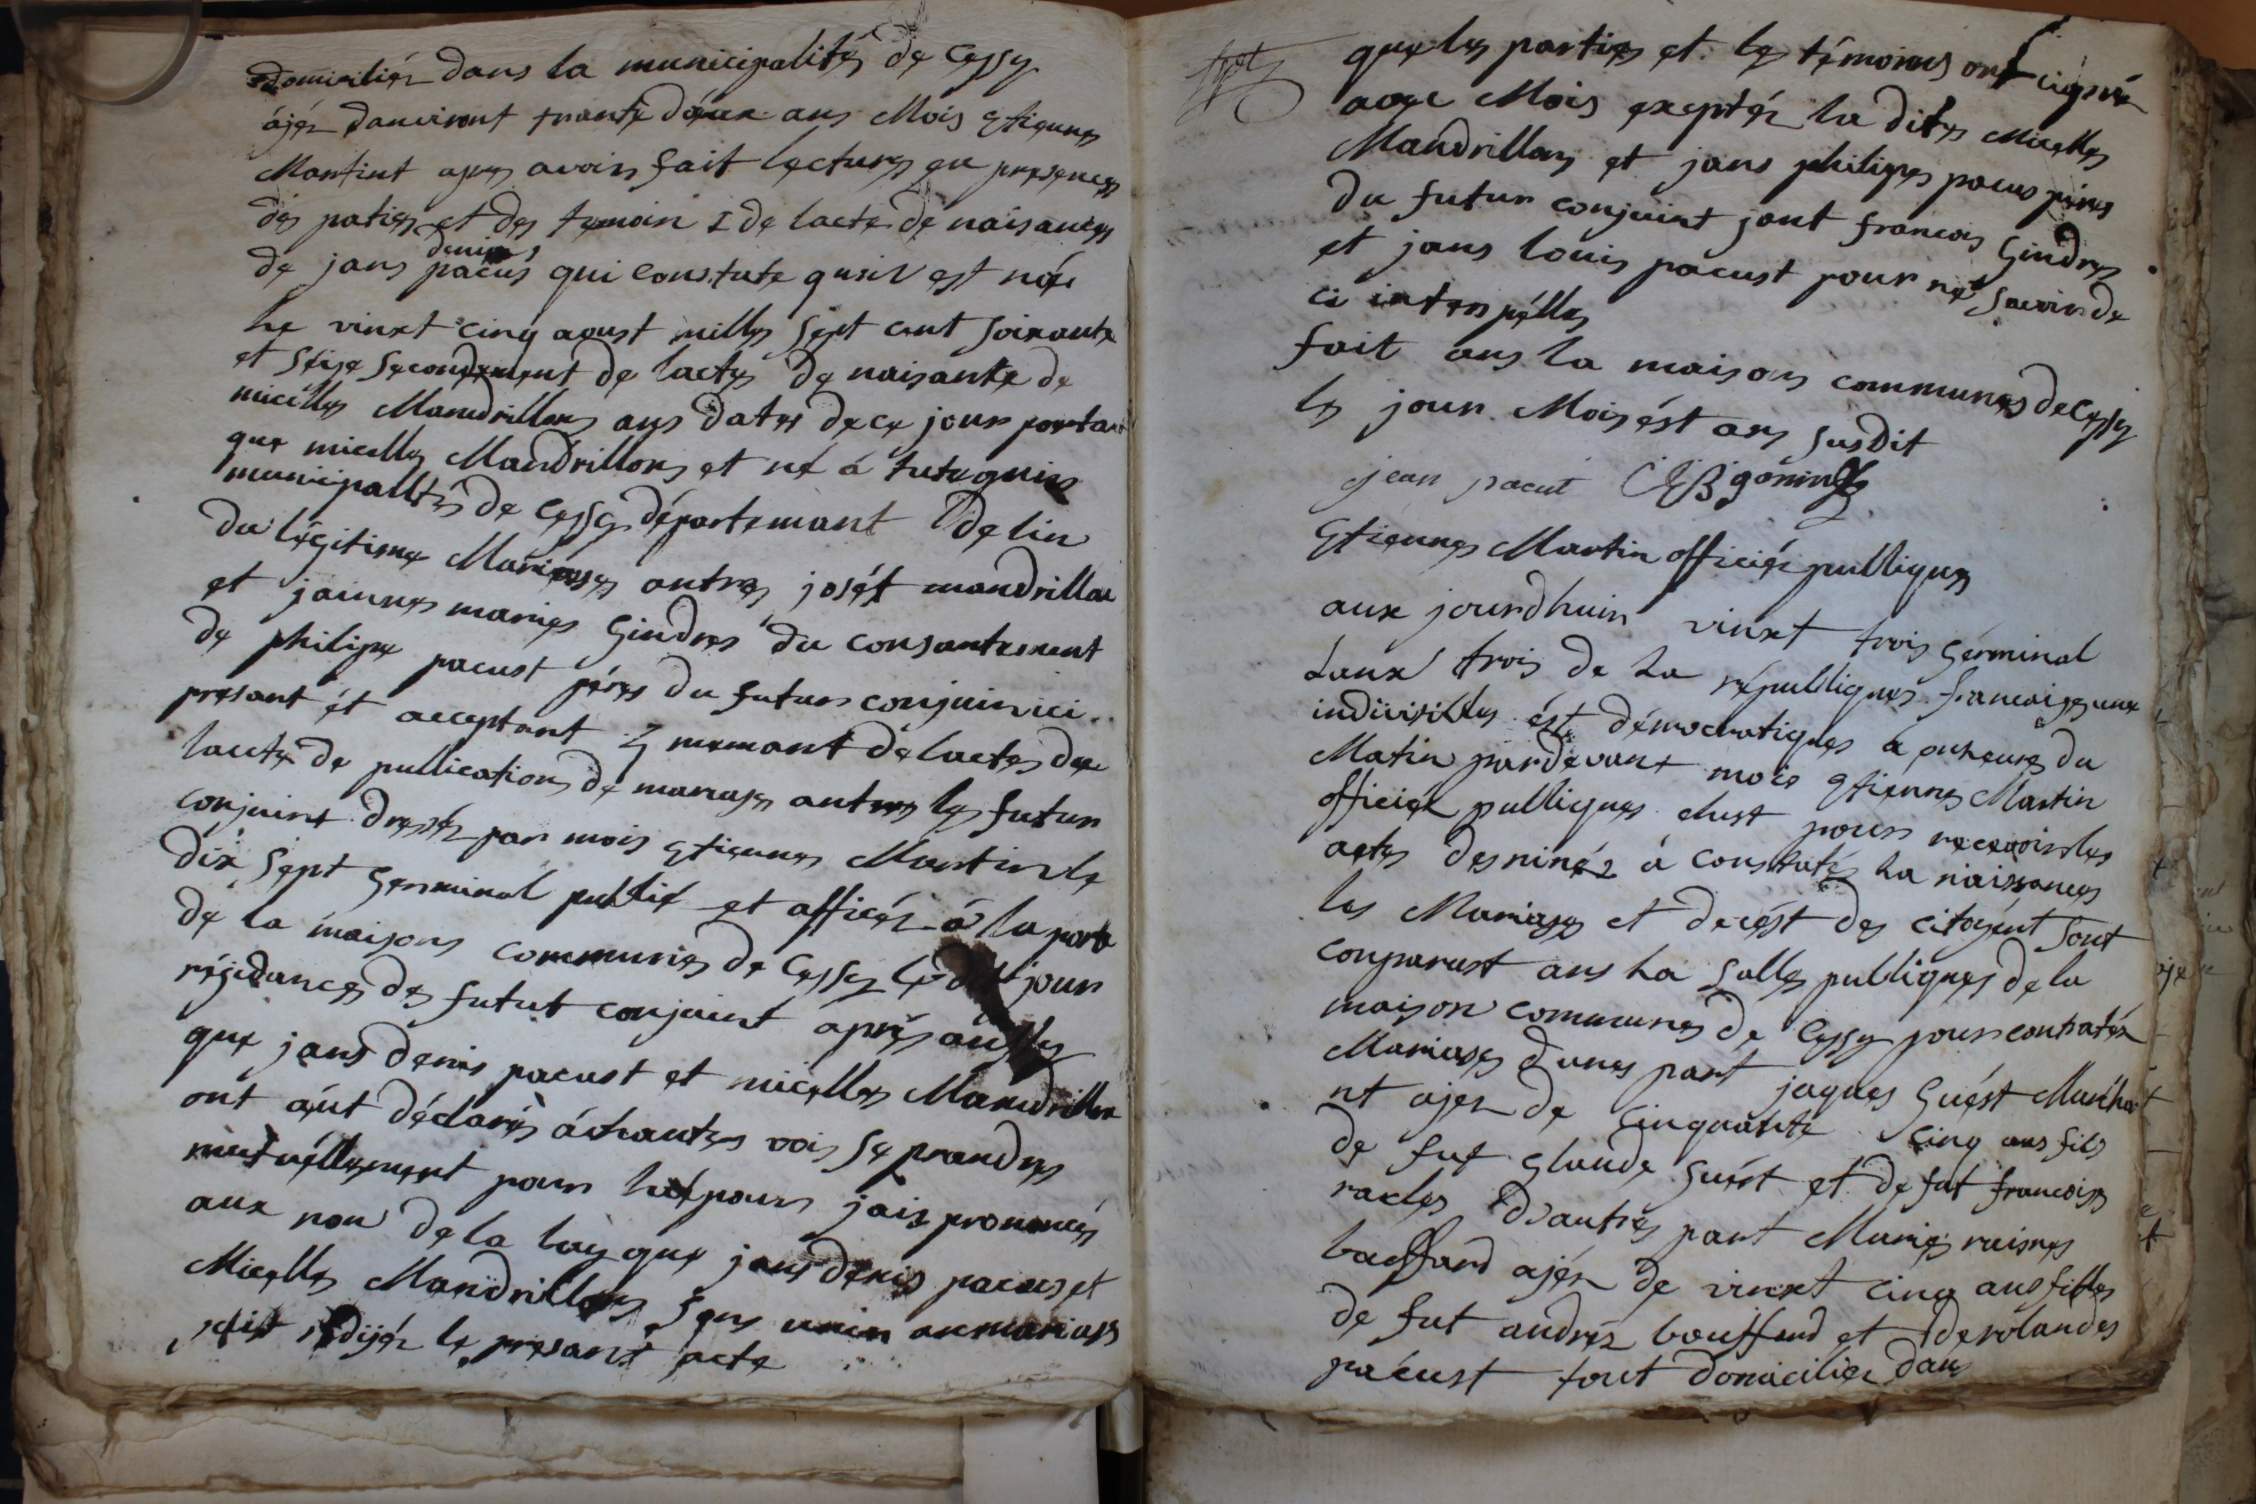 domiciliéz dans la municipalitéz de Cessy
ájéz danviront trante deux ans Mois Etiennes
Martint apres avoirs fait lectures en presences
des paties et des temoin 1 de lacte de naisances
denis
de jans pacus qui constate qusil est née
le vinxt cinq aoust milles sept cent soixante
et seise secondement de lactes de naisante de
micelles Mandrillons ans dates de ce jour portant
que micelles Mandrillons et né á
municipalités de Cessy départemant de lin
du légitime Mariages antres josét mandrillon
et jainnes maries Gindres du consantement
de philipe pacust péres du futur conjuin ici
présant ét acceptant 3 memant de lactes de
lacte de publications de mariages antres les futur
conjuint dresséz par mois Etiennes Martin le
dix sept Germinal publié et afficéz á la porte
de la maisons communes de Cessy jour
réjidances des futut conjuint áprés
que jans denis pacust et micelles Mandrillon
ont aút déclarés áchautes vois se prandres
mutuéllement pour pour jais prononcés
aux non de la loy que jans denis pacus et
Micelles Mandrillons sons unin an mariages
rédijéz le présant acte
que les parties et les témoins ont cignéz
avec Mois exeptéz la dites Micelles
Mandrillons et jans philipes pacus péres
du futur conjuint jant francois Gindres
et jans louis pacust pour ne savoir de
ci interpélles
fait ans la maisons communes de Cessy
les jour Mois ést ans susdit
jean pacut gonin
Etiennes Martin officiér publiques
aux jourdhuin vinxt trois Gérminal
Lanx trois de La républiques francaises une
indivisibles ést démocratiques a onheures du
Matin pardevant moie etiénnes Martin
officiér publiques elust pour recevoir les
actes desninéz á constatéz La naissances
les Mariages et decést des citoyént sont
conparust ans La salles publiques de la
maison communes de Cessy pour contratéz
Mariages dunes part jaques Guést Marcha
nt ajéz de cinquante cinq ans fils
de fut glaude Guést et de fut francoises
racles dautrés part Maries raisnes
bouffard ajéz de vinxt cinq ans filles
de fut andréz bouffard et de rolandes
pacust tout domiciliéz dans